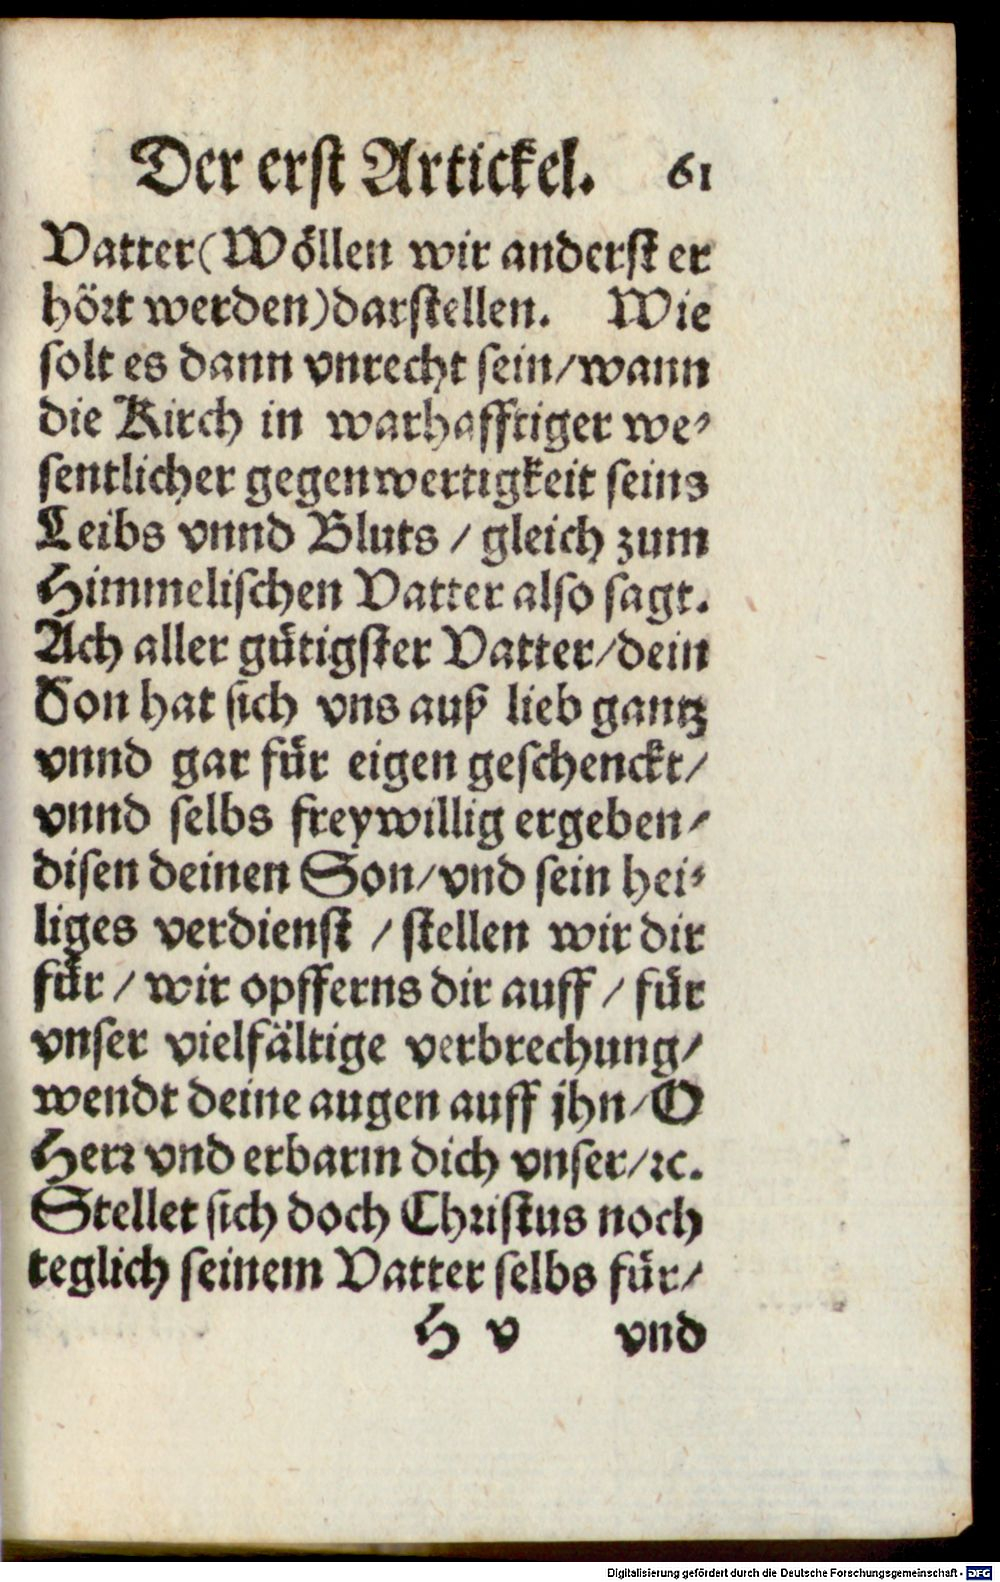 Der erst Artickel. 61
Vatter (Wöllen wir anderst er
hört werden) darstellen. Wie
solt es dann vnrecht sein / wann
die Kirch in warhafftiger we-
sentlicher gegenwertigkeit seins
Leibs vnnd Bluts / gleich zum
Himmelischen Vatter also sagt.
Ach aller gütigster Vatter / dein
Son hat sich vns auß lieb gantz
vnnd gar für eigen geschenckt /
vnnd selbs freywillig ergeben /
disen deinen Son / vnd sein hei-
liges verdienst / stellen wir dir
für / wir opfferns dir auff / für
vnser vielfältige verbrechung /
wendt deine augen auff jhn / O
Herr vnd erbarm dich vnser / ꝛc.
Stellet sich doch Christus noch
teglich seinem Vatter selbs für /
H v vnd
Digitalisierung gefördert durch die Deutsche Forschungsgemeinschaft - DFG